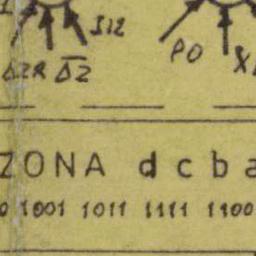 S12
Δ2R Δ̅2̅
P0
ZONA d c b a
0 1001 1011 1111 1100